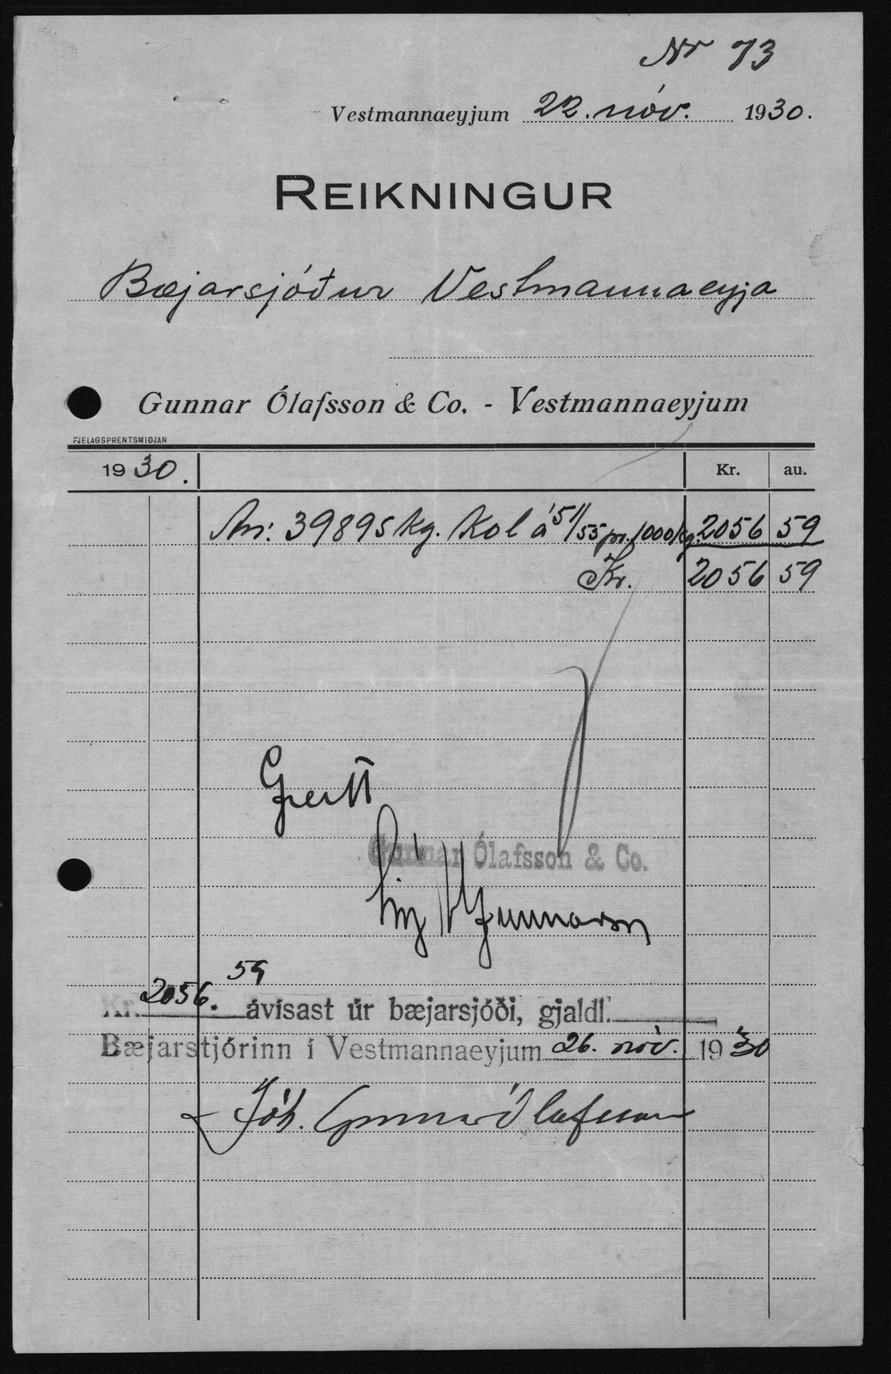 Nr 73
Vestmannaeyjum 22. nóv. 1930.
REIKNINGUR
Bæjarsjóður Vestmannaeyja
Gunnar Ólafsson & Co. - Vestmannaeyjum
FJELAGSPRENTSMIÐJAN
1930. Kr. au.
39895 kg. Kol á 51/55 pr. 1000 kg. 2056 59
Kr. 2056 59
Greitt
Gunnar Ólafsson & Co.
Gunnarsson
Kr. 2056.59 ávísast úr bæjarsjóði, gjaldl.
Bæjarstjórinn í Vestmannaeyjum 26. nóv. 1930
Jóh. Gunnar Ólafsson